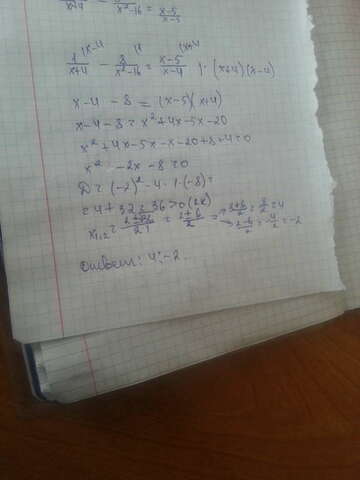 x+4 x²-16 = x-5/x-5
1/x+4 - 8/x²-16 = x-5/x-4 | · (x+4)(x-4)
x-4-8 = (x-5)(x+4)
x-4-8=x²+4x-5x-20
x²+4x-5x-x-20+8+4=0
x²-2x-8=0
D=(-2)²-4·1·(-8)=
=4+32=36>0(2к)
x₁,₂= = 2±6/2 = 2+6/2=8/2=4
2-6/2=-4/2=-2
Ответ: 4; -2.